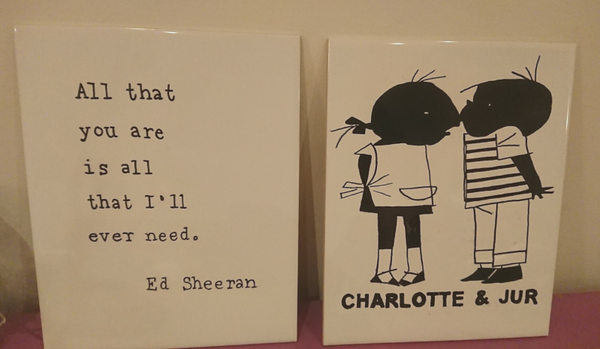 All that
you are
is all
that I'll
ever need.
Ed Sheeran
CHARLOTTE & JUR